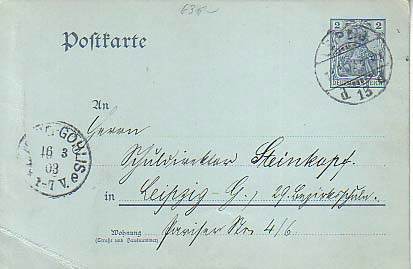 Postkarte
2 2
An
Herrn
Schuldirektor Steinkopf.
in Leipzig-G., 29. Bezirksschule.
Wohnung
(Straße und Hausnummer)
Pariser Str. 4/6
GOHLIS
16 3
03
-7 V.
d. 15